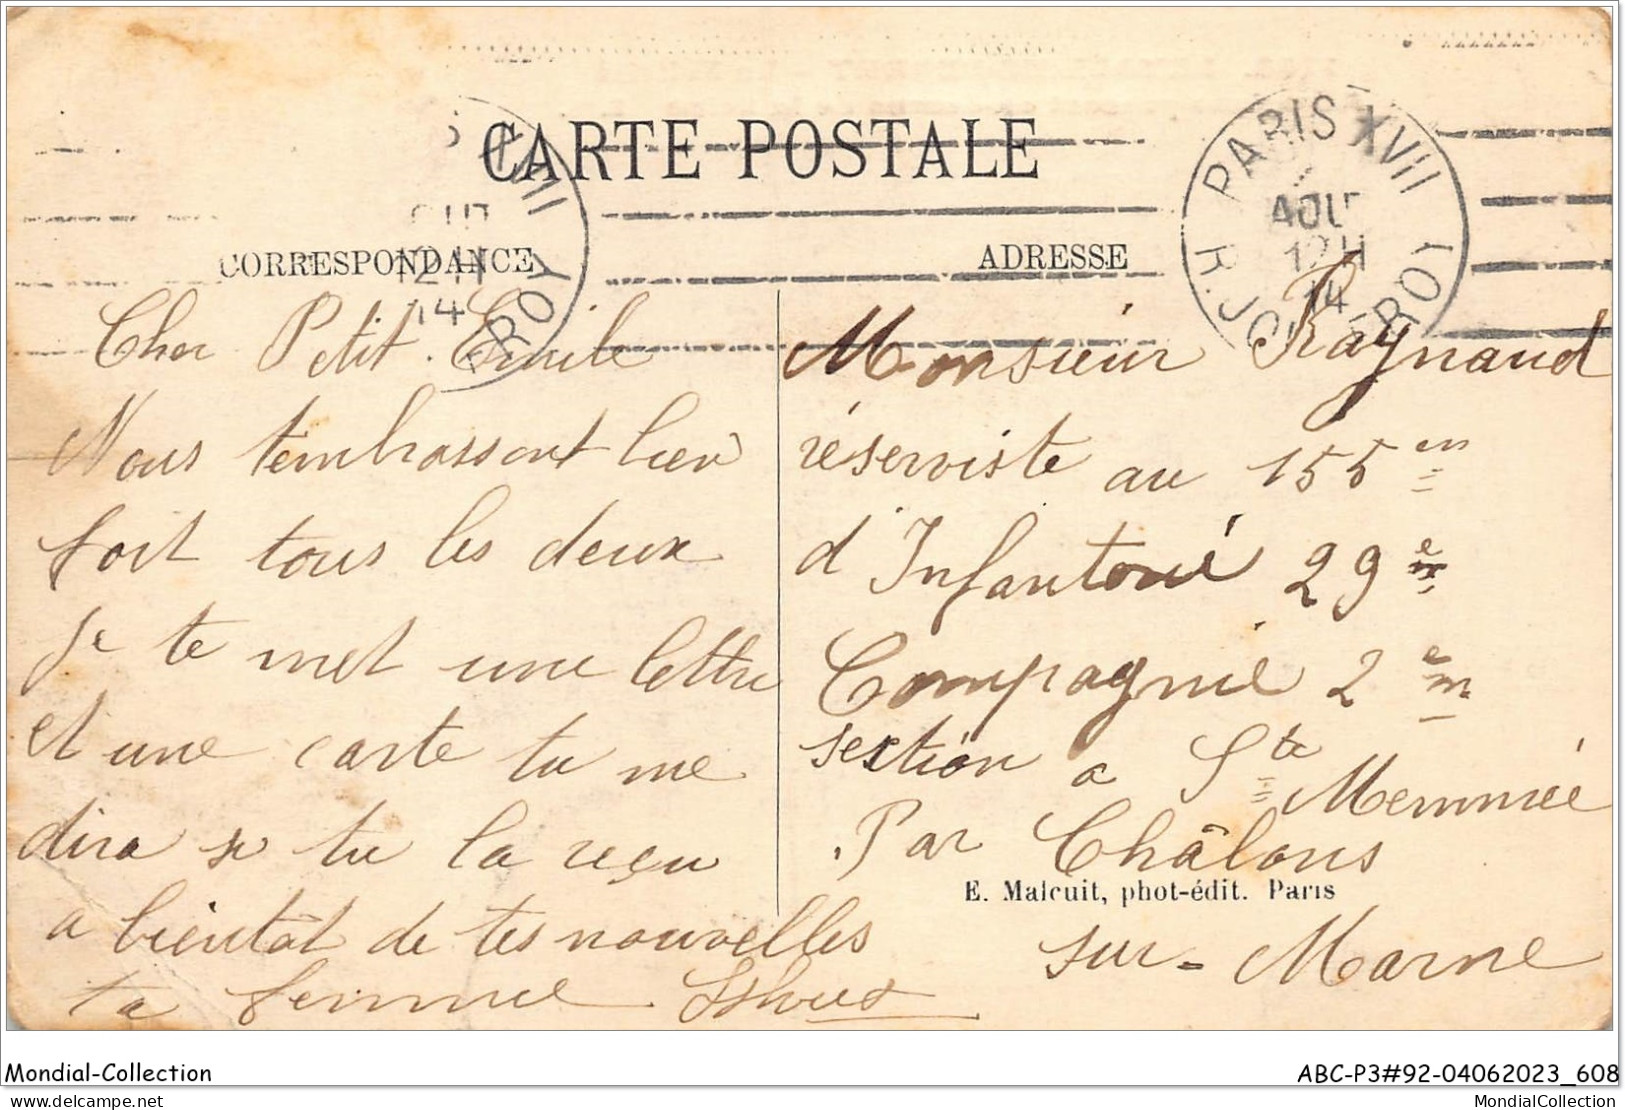 CARTE POSTALE
PARIS XVIII
AOUT
12H
14
R. JOFFROY
CORRESPONDANCE
ADRESSE
Cher Petit Emile
Nous t'embrassont bien
fort tous les deux
je te met une lettre
et une carte tu me
dira si tu la reçu
a bientôt de tes nouvelles
ta femme
Monsieur Raynaud
réserviste au 155 em
d'Infanterie 29 em
Compagnie 2 em
section a Ste Memmée
Par Châlons
sur-Marne
E. Malcuit, phot-édit. Paris
Mondial-Collection
ABC-P3#92-04062023_608
delcampe.net
MondialCollection